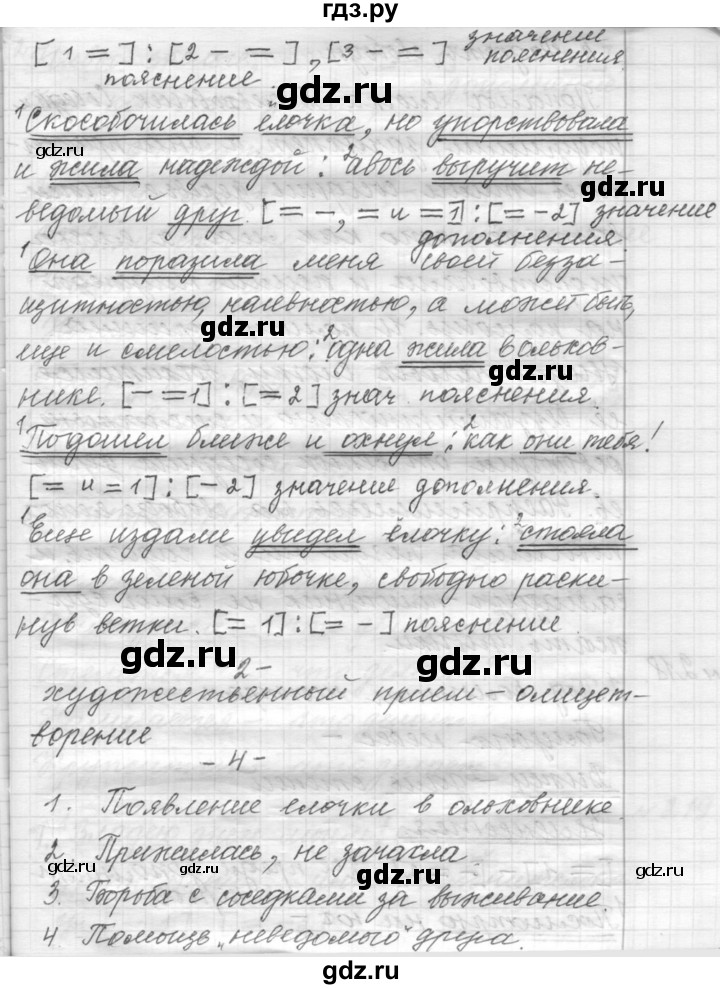 гдз.ру
[1 =] : [2 - =], [3 - =] значение пояснения
пояснение
gdz.ru
¹Скособочилась ёлочка, но упорствовала
gdz.ru gdz.ru
и жила надеждой: ²авось выручит не-
gdz.ru
ведомый друг. [= -, = и = 1] : [= - 2] значение
дополнения.
¹Она поразила меня своей безза-
щитностью, наивностью, а может быть,
gdz.ru
еще и смелостью: ²одна жила в ольхов-
gdz.ru gdz.ru
нике. [- = 1] : [= 2] знач. пояснения.
¹Подошел ближе и охнул: ²как они тебя!
gdz.ru
[= и = 1] : [- 2] значение дополнения.
¹Еще издали увидел ёлочку: ²стояла
gdz.ru gdz.ru
она в зеленой юбочке, свободно раски-
нув ветки. [= 1] : [= -] пояснение
gdz.ru
- 2 -
художественный прием - олицет-
gdz.ru gdz.ru
ворение
- 4 -
gdz.ru
1. Появление елочки в ольховнике
2. Прижилась, не зачахла
gdz.ru gdz.ru
3. Борьба с соседками за выживание.
4. Помощь "неведомого" друга.
gdz.ru